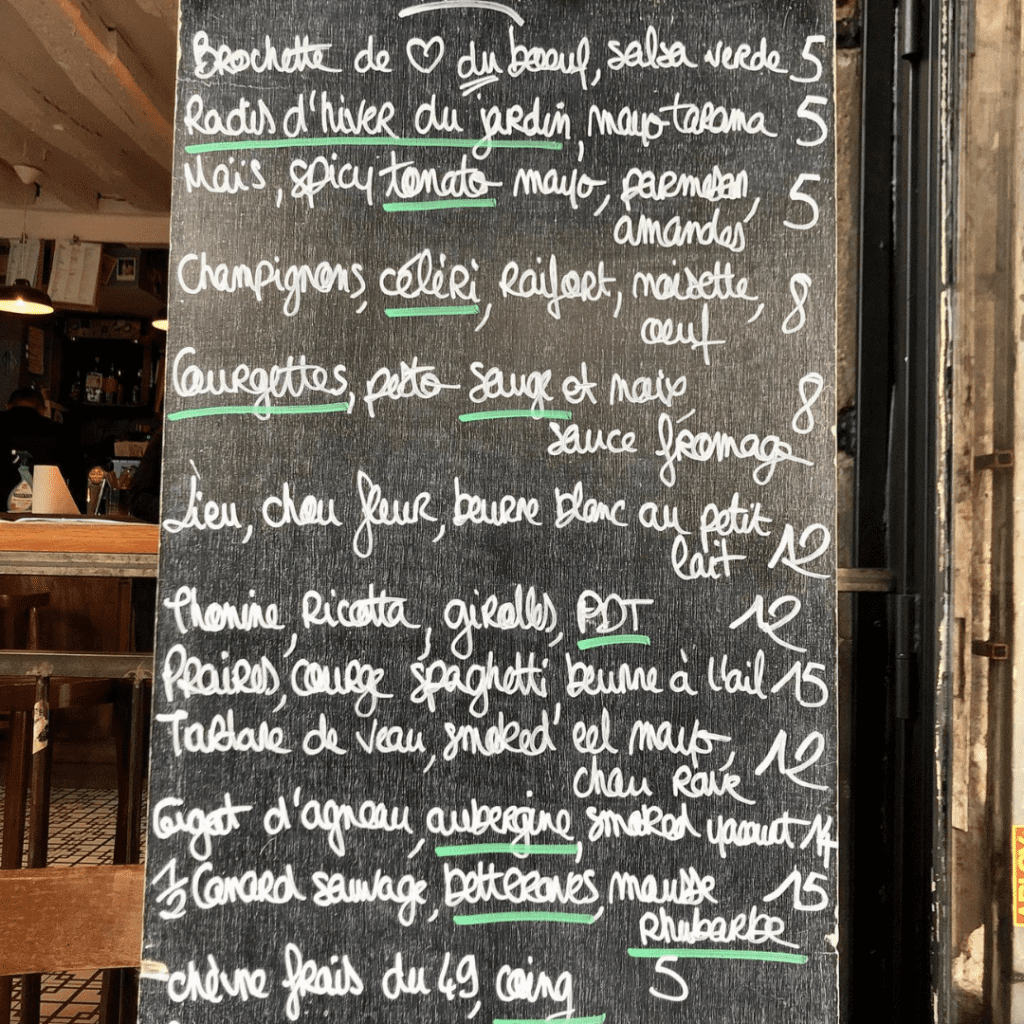 Brochette de ♡ du boeuf, salsa verde 5
Radis d'hiver du jardin, mayo tarama 5
Maïs, spicy tomato mayo, parmesan, 5
amandes
Champignons, céléri, raifort, noisette, 8
oeuf
Courgettes, pesto sauge et noix 8
sauce fromage
Lieu, chou fleur, beurre blanc au petit
lait 12
Thonine, Ricotta, girolles, PDT 12
Praires, courge spaghetti beurre à l'ail 15
Tartare de veau, smoked eel mayo, 12
chou rave
Gigot d'agneau, aubergine, smoked yaourt 14
1/2 Canard sauvage, betteraves, mousse 15
rhubarbe
chèvre frais du 49, coing 5